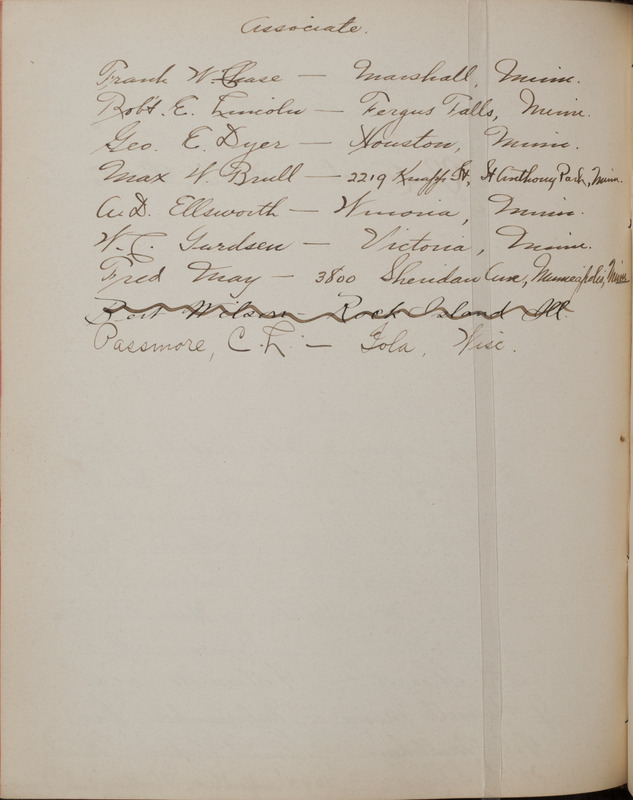 Associate.
Frank W. Chase — Marshall, Minn.
Robt. E. Lincoln — Fergus Falls, Minn.
Geo. E. Dyer — Houston, Minn.
Max W. Brull — 2219 Knapp St, St Anthony Park, Minn.
A.D. Ellsworth — Winona, Minn.
W. C. Gerdsen — Victoria, Minn.
Fred May — 3800 Sheridan Ave, Minneapolis, Minn
Bert Wilson — Rock Island Ill.
Passmore, C. L. — Iola, Wisc.